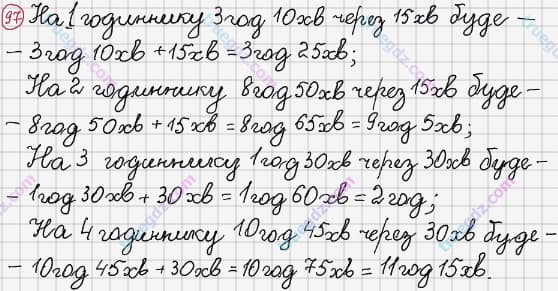 97 На 1 годиннику 3год 10хв через 15хв буде –
– 3год 10хв + 15хв = 3год 25хв;
На 2 годиннику 8год 50хв через 15хв буде –
– 8год 50хв + 15хв = 8год 65хв = 9год 5хв;
На 3 годиннику 1год 30хв через 30хв буде –
– 1год 30хв + 30хв = 1год 60хв = 2год;
На 4 годиннику 10год 45хв через 30хв буде –
– 10год 45хв + 30хв = 10год 75хв = 11год 15хв.